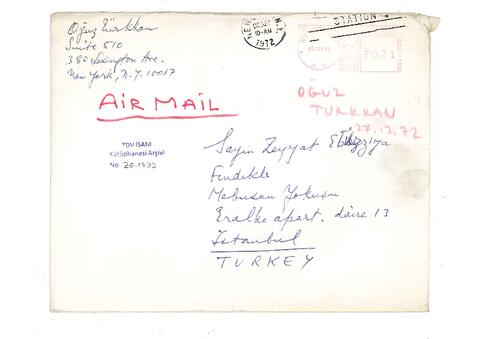 Oğuz Türkkan
Suite 510
380 Lexington Ave.
New York, N.Y. 10017
AIR MAIL
STATION
10-AM
1972
0.21
OĞUZ
TURKKAN
27.12.72
TDV İSAM
Kütüphanesi Arşivi
No
Sayın Zeyyat Ebüzziya
Fındıklı
Mebusan Yokuşu
Eralko apart. daire 13
İstanbul
TURKEY